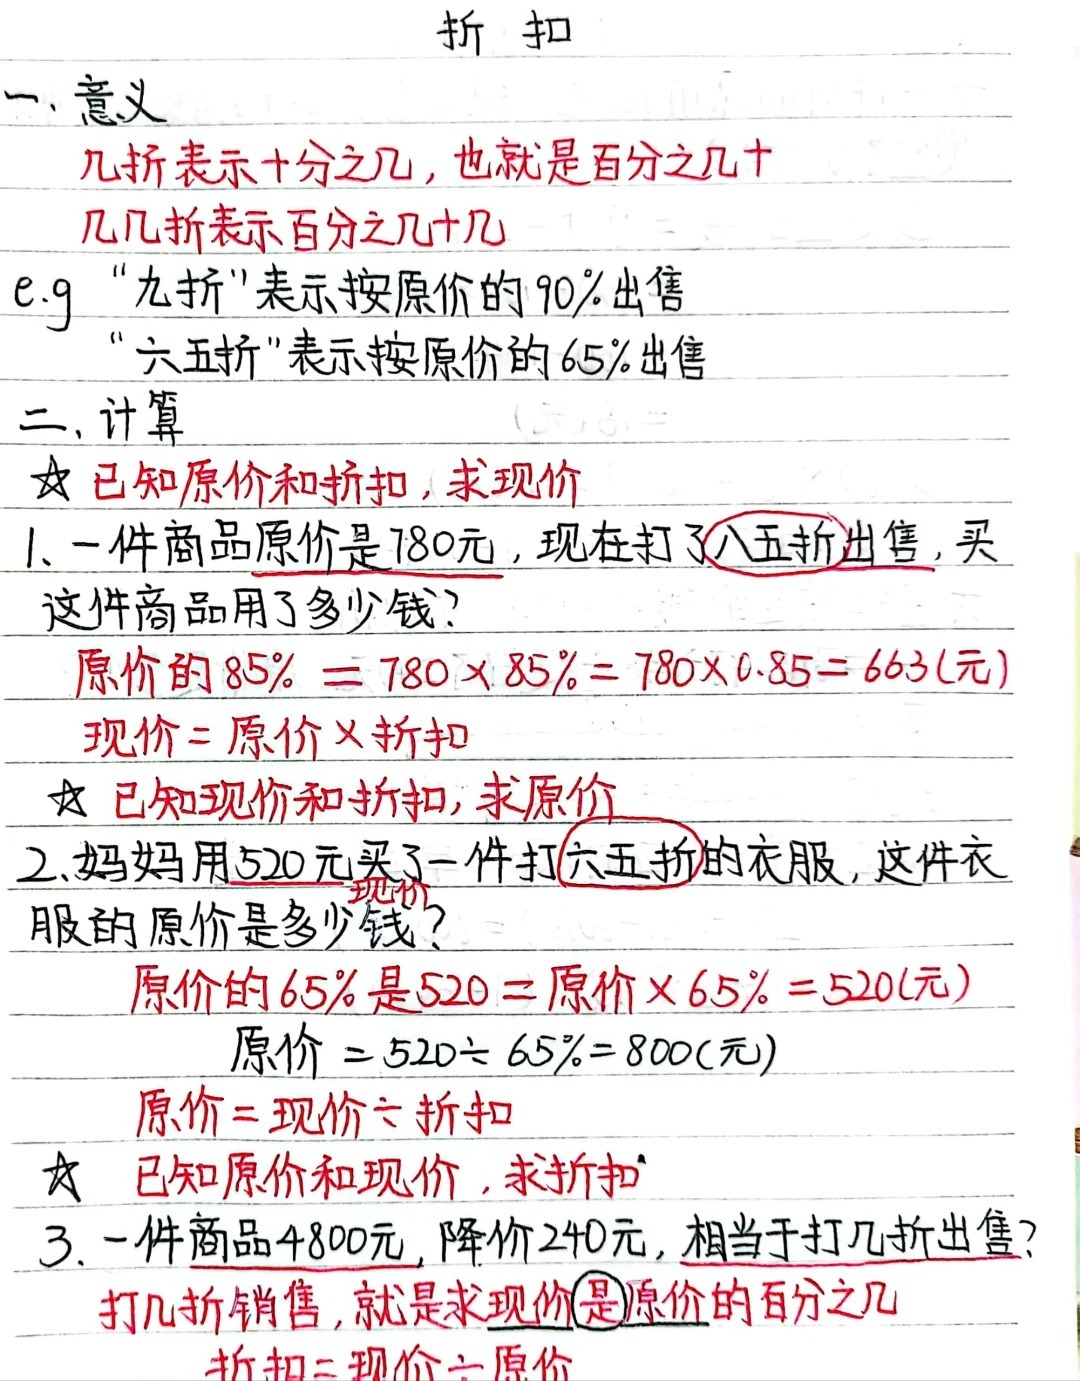 折扣
一、意义
几折表示十分之几，也就是百分之几十
几几折表示百分之几十几
e.g "九折"表示按原价的90%出售
"六五折"表示按原价的65%出售
二、计算
☆ 已知原价和折扣，求现价
1、一件商品原价是780元，现在打了八五折出售，买
这件商品用了多少钱？
原价的85% = 780×85% = 780×0.85 = 663(元)
现价 = 原价 × 折扣
☆ 已知现价和折扣，求原价
2、妈妈用520元买了一件打六五折的衣服，这件衣
现价
服的原价是多少钱？
原价的65%是520 = 原价×65% = 520(元)
原价 = 520÷65% = 800(元)
原价 = 现价÷折扣
☆ 已知原价和现价，求折扣
3、一件商品4800元，降价240元，相当于打几折出售？
打几折销售，就是求现价是原价的百分之几
折扣 = 现价÷原价